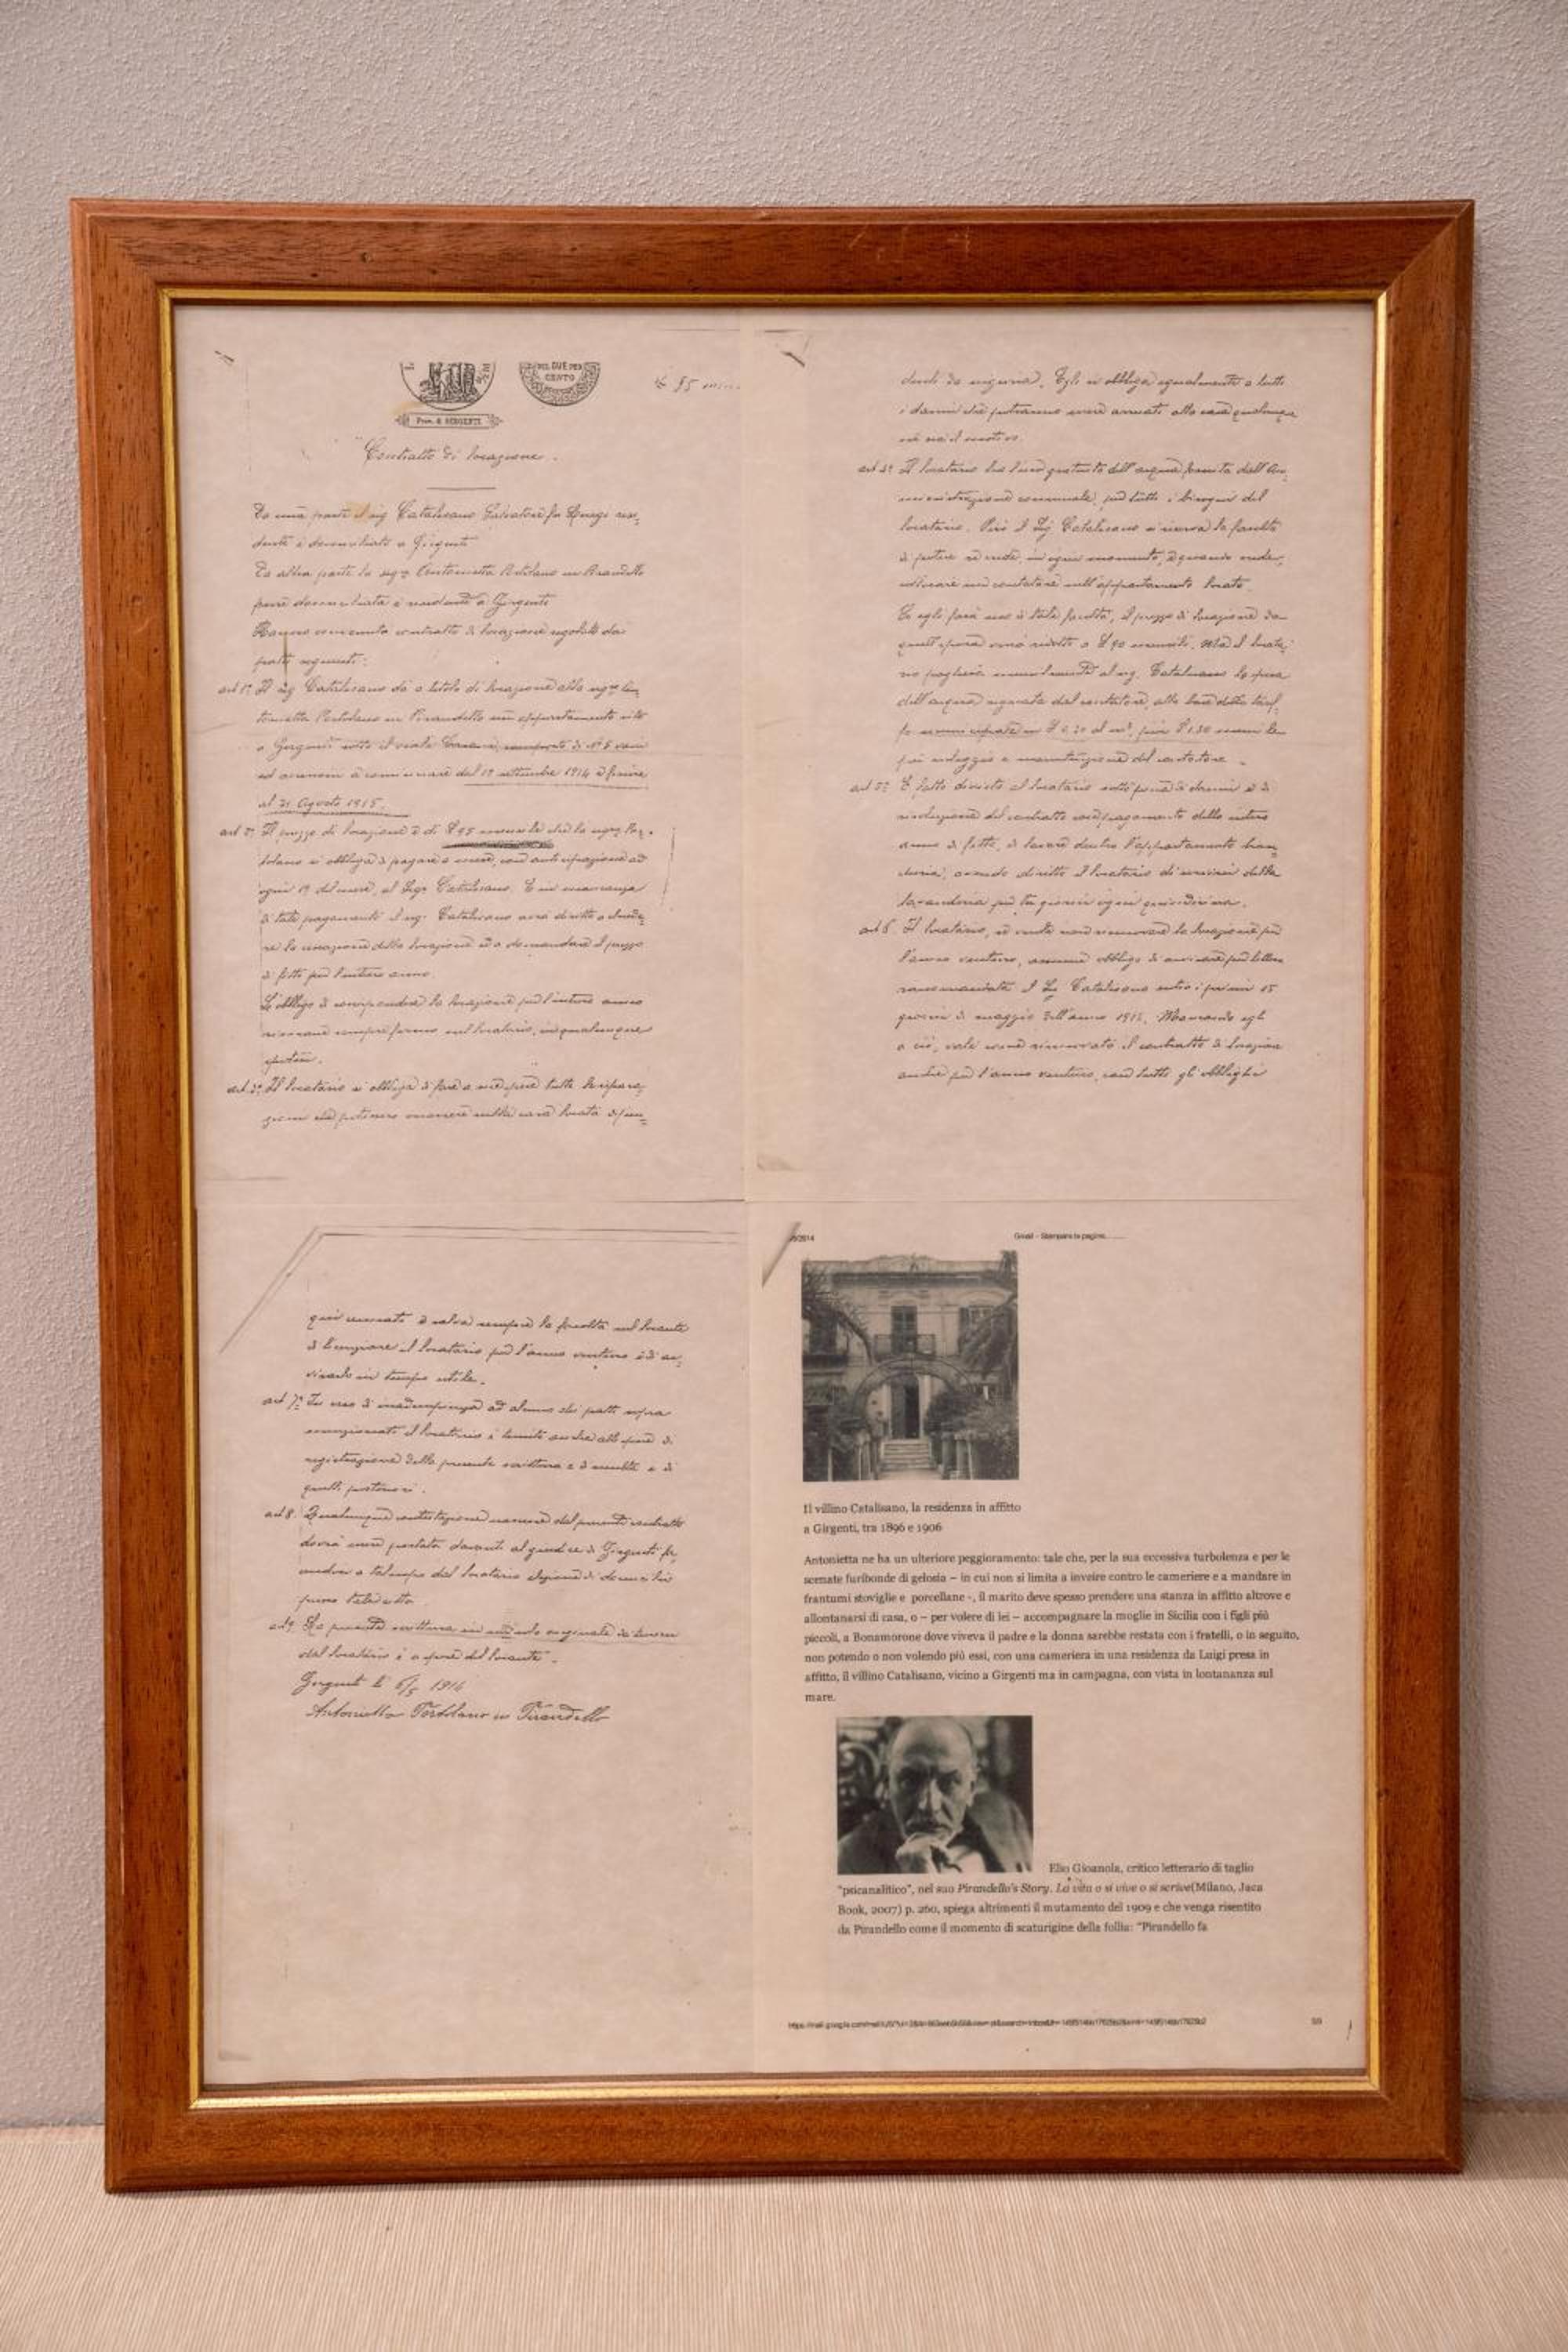 DEL DUE PER
CENTO
Prov. di GIRGENTI
Contratto di locazione.
Da una parte il sig Catalisano Salvatore fu Luigi resi-
dente e domiciliato a Girgenti
Da altra parte la sigra Antonietta Portolano in Pirandello
pure domiciliata e residente a Girgenti
Hanno convenuto contratto di locazione regolato dai
patti seguenti:
art 1º Il sig Catalisano dà a titolo di locazione alla sigra An-
tonietta Portolano in Pirandello un appartamento sito
a Girgenti sotto il viale composto di Nº 5 vani
ed accessori a cominciare dal 1º settembre 1914 a finire
al 31 Agosto 1915.
art 2º Il prezzo di locazione è di £ 95 mensile che la sigra Por-
tolano si obbliga di pagare a mese, con anticipazione ad
ogni 1º del mese, al Sigr Catalisano. E in mancanza
di tale pagamento il sig. Catalisano avrà diritto a chiede-
re la cessazione della locazione ed a domandare il prezzo
di fitto per l'intero anno.
L'obbligo di corrispondere la locazione per l'intero anno
rimane sempre fermo nel locatario, in qualunque
ipotesi.
art. 3º Il locatario si obbliga di fare a sue spese tutte le ripara-
zioni che potranno occorrere nella casa locata dipen-
denti da incuria. Egli si obbliga egualmente a tutti
i danni che potranno essere arrecati alla casa qualunque
ne sia il motivo.
art 4º Il locatario ha l'uso gratuito dell'acqua fornita dall'Am-
ministrazione comunale, per tutti i bisogni del
locatario. Però il Sig Catalisano si riserva la facoltà
di potere in ogni momento, quando crede,
collocare un contatore nell'appartamento locato.
Se egli farà uso di tale facoltà, il prezzo di locazione da
quell'epoca verrà ridotto a £ 90 mensili. Ma il locata-
rio pagherà mensilmente al sig. Catalisano la spesa
dell'acqua segnata dal contatore, alla base della tarif-
fa municipale in £ 0,70 al m³, più £ 1.50 mensile
per noleggio e manutenzione del contatore.
art 5º È fatto divieto al locatario sotto pena di danni e di
risoluzione del contratto con pagamento dello intero
anno di fitto, di lavare dentro l'appartamento bian-
cheria, avendo diritto il locatario di servirsi della
lavanderia per tre giorni ogni quindicina.
art 6. Il locatario, se vorrà non rinnovare la locazione per
l'anno venturo, assume obbligo di avvisare per lettera
raccomandata il Sig Catalisano entro i primi 15
giorni di maggio dell'anno 1915. Mancando egli
a ciò, vale come rinnovato il contratto di locazione
anche per l'anno venturo, con tutti gli obblighi
qui cennati e salva sempre la facoltà nel locante
di licenziare il locatario per l'anno venturo e di av-
visarlo in tempo utile.
art 7º In caso di inadempienza ad alcuno dei patti sopra
menzionati il locatario è tenuto anche alle spese di
registrazione della presente scrittura e di multe e di
quelli posteriori.
art 8. Qualunque contestazione nascente dal presente contratto
dovrà essere portata davanti al giudice di Girgenti fa-
cendosi a tal uopo dal locatario elezione di domicilio
art 9 La presente scrittura in originale da tenersi
dal locatario è a spese del locante.
Girgenti li 6/5 1914
Antonietta Portolano in Pirandello
Gmail - Stampare la pagina.......
Il villino Catalisano, la residenza in affitto
a Girgenti, tra 1896 e 1906
Antonietta ne ha un ulteriore peggioramento: tale che, per la sua eccessiva turbolenza e per le
scenate furibonde di gelosia – in cui non si limita a inveire contro le cameriere e a mandare in
frantumi stoviglie e porcellane -, il marito deve spesso prendere una stanza in affitto altrove e
allontanarsi di casa, o – per volere di lei – accompagnare la moglie in Sicilia con i figli più
piccoli, a Bonamorone dove viveva il padre e la donna sarebbe restata con i fratelli, o in seguito,
non potendo o non volendo più essi, con una cameriera in una residenza da Luigi presa in
affitto, il villino Catalisano, vicino a Girgenti ma in campagna, con vista in lontananza sul
mare.
Elio Gioanola, critico letterario di taglio
"psicanalitico", nel suo Pirandello's Story. La vita o si vive o si scrive(Milano, Jaca
Book, 2007) p. 260, spiega altrimenti il mutamento del 1909 e che venga risentito
da Pirandello come il momento di scaturigine della follia: "Pirandello fa